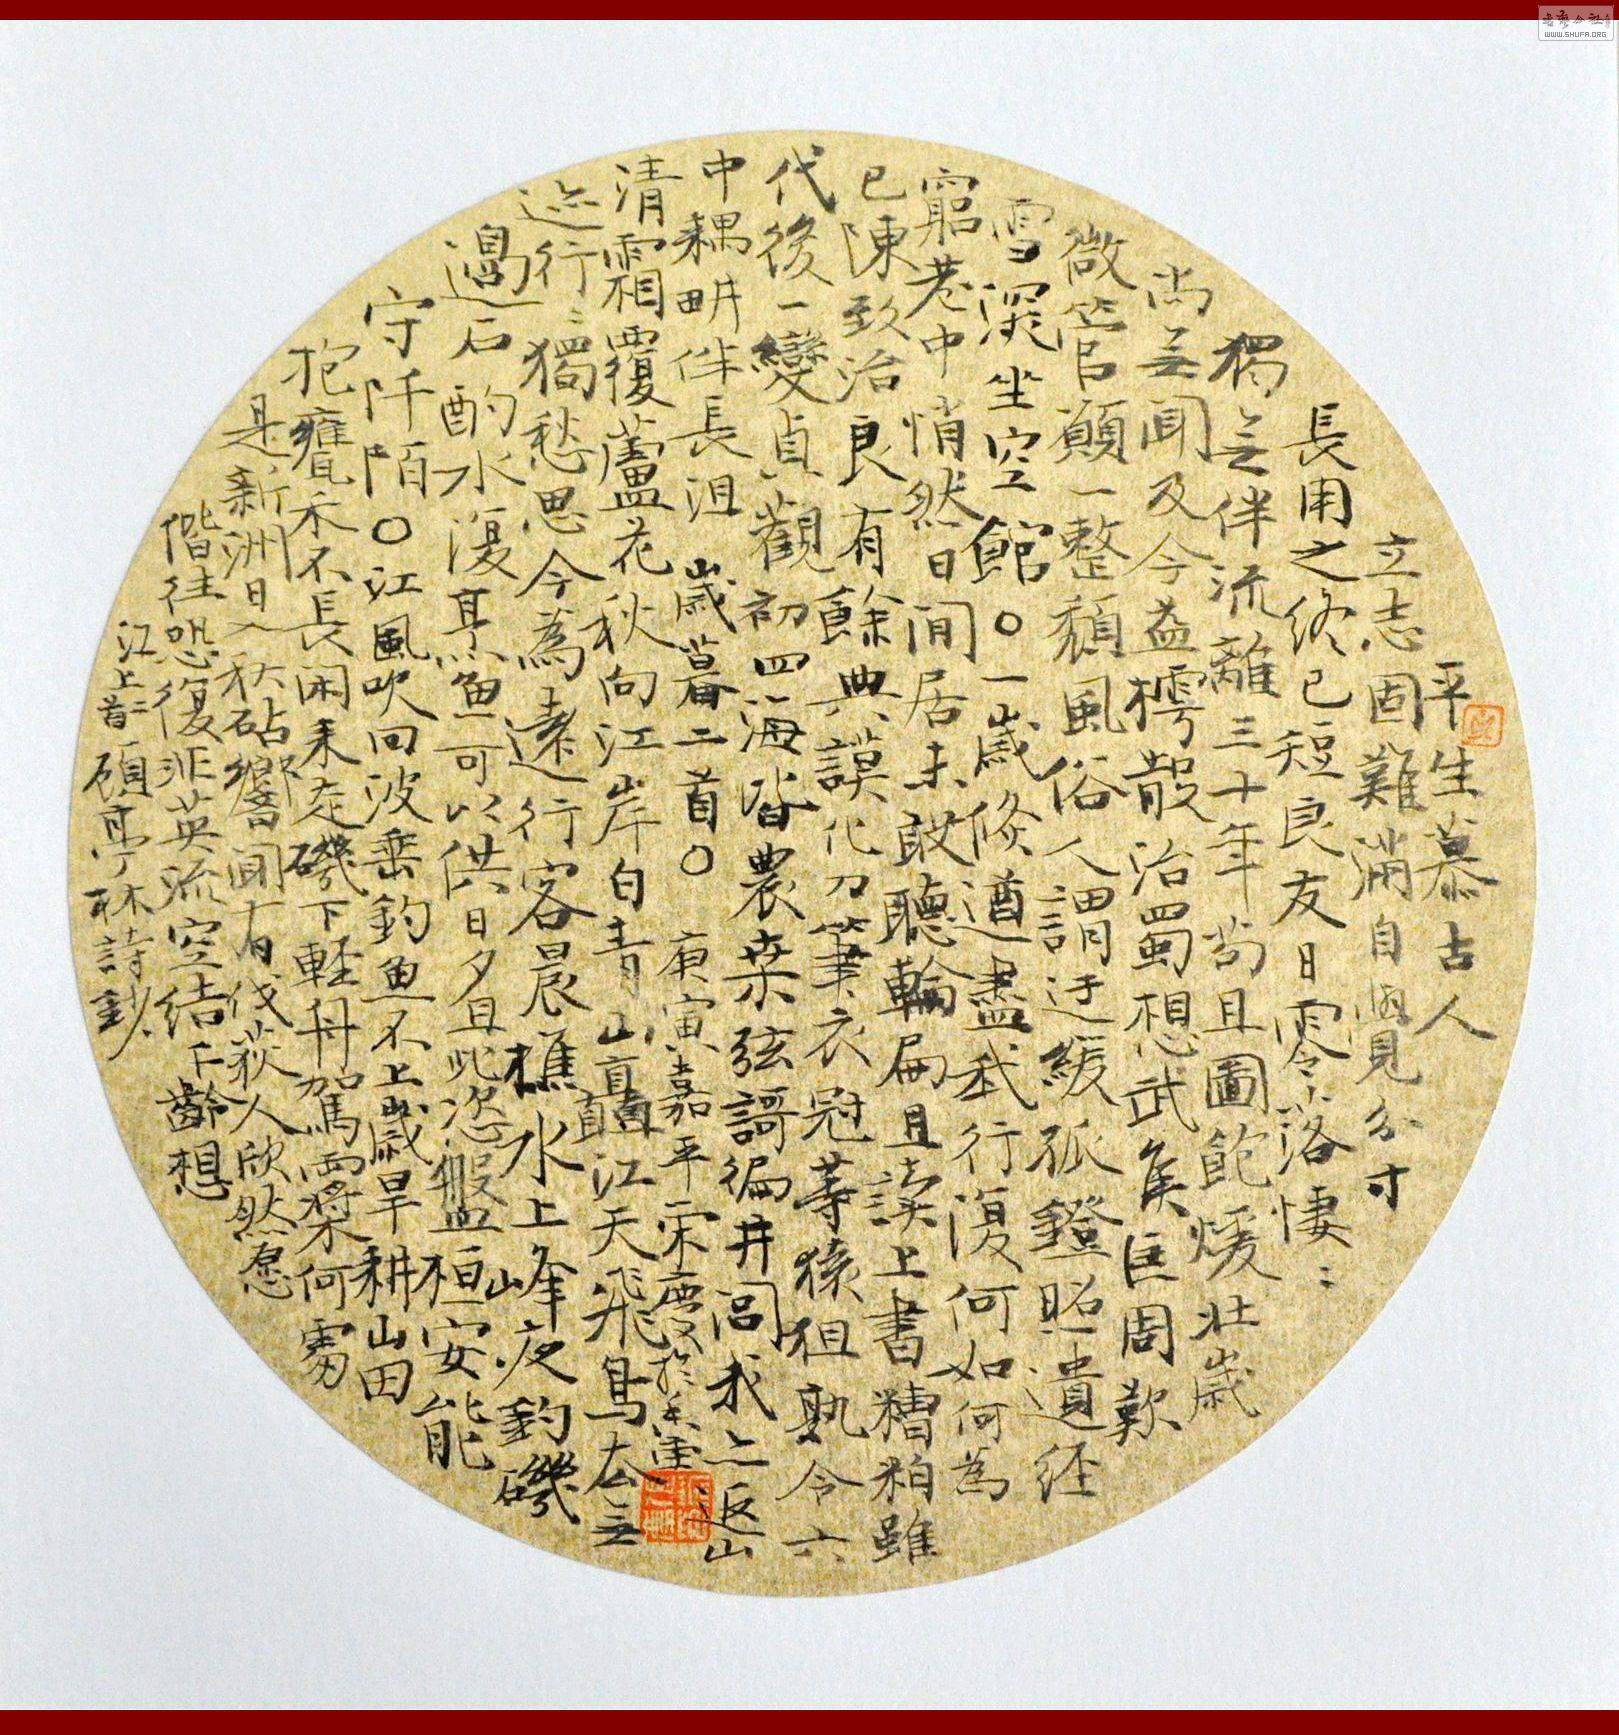 平生慕古人
立志固難滿自覺分寸
長用之終已短良友日零落悽〻
獨无伴流離三十年苟且圖飽煖壯歲
尚无聞及今益樗散治蜀想武侯匡周歎
微管願一整頹風俗人謂迂緩孤鐙照遺經
雪深坐空館○一歲倏遒盡我行復何如何為
窮巷中悄然日閒居未敢聽輪扁且讀上書糟粕雖
已陳致治良有餘典謨化刀筆衣冠等猿狙孰令六
代後一變貞觀初四海皆農桒弦謌徧井閭我亦返山
中耦畊伴長沮 歲暮二首○ 庚寅嘉平宋慶於
清霜覆蘆花秋向江岸白青山矗江天飛鳥去无
迹行〻獨愁思今為遠行客晨樵水上峯夜釣磯
邊石酌水復烹魚可以供日夕且此恣盤桓安能
守阡陌○江風吹回波垂釣魚不上歲旱耕山田
抱甕禾不長閑來走磯下輕舟駕兩槳何處
是新洲日入秋砧響聞有伐荻人欣然愿
偕往恐復非英流空結千齡想
江上二首 顧亭林詩鈔
WWW.SHUFA.ORG